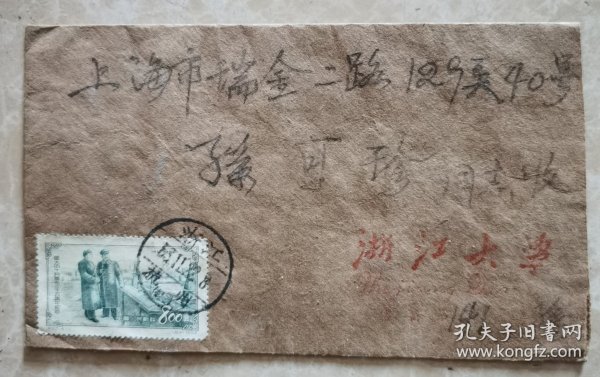 上海市瑞金二路129弄40号
孫可珍 同志收
浙江大学
浙江
800
孔夫子旧书网
www.kongfz.com